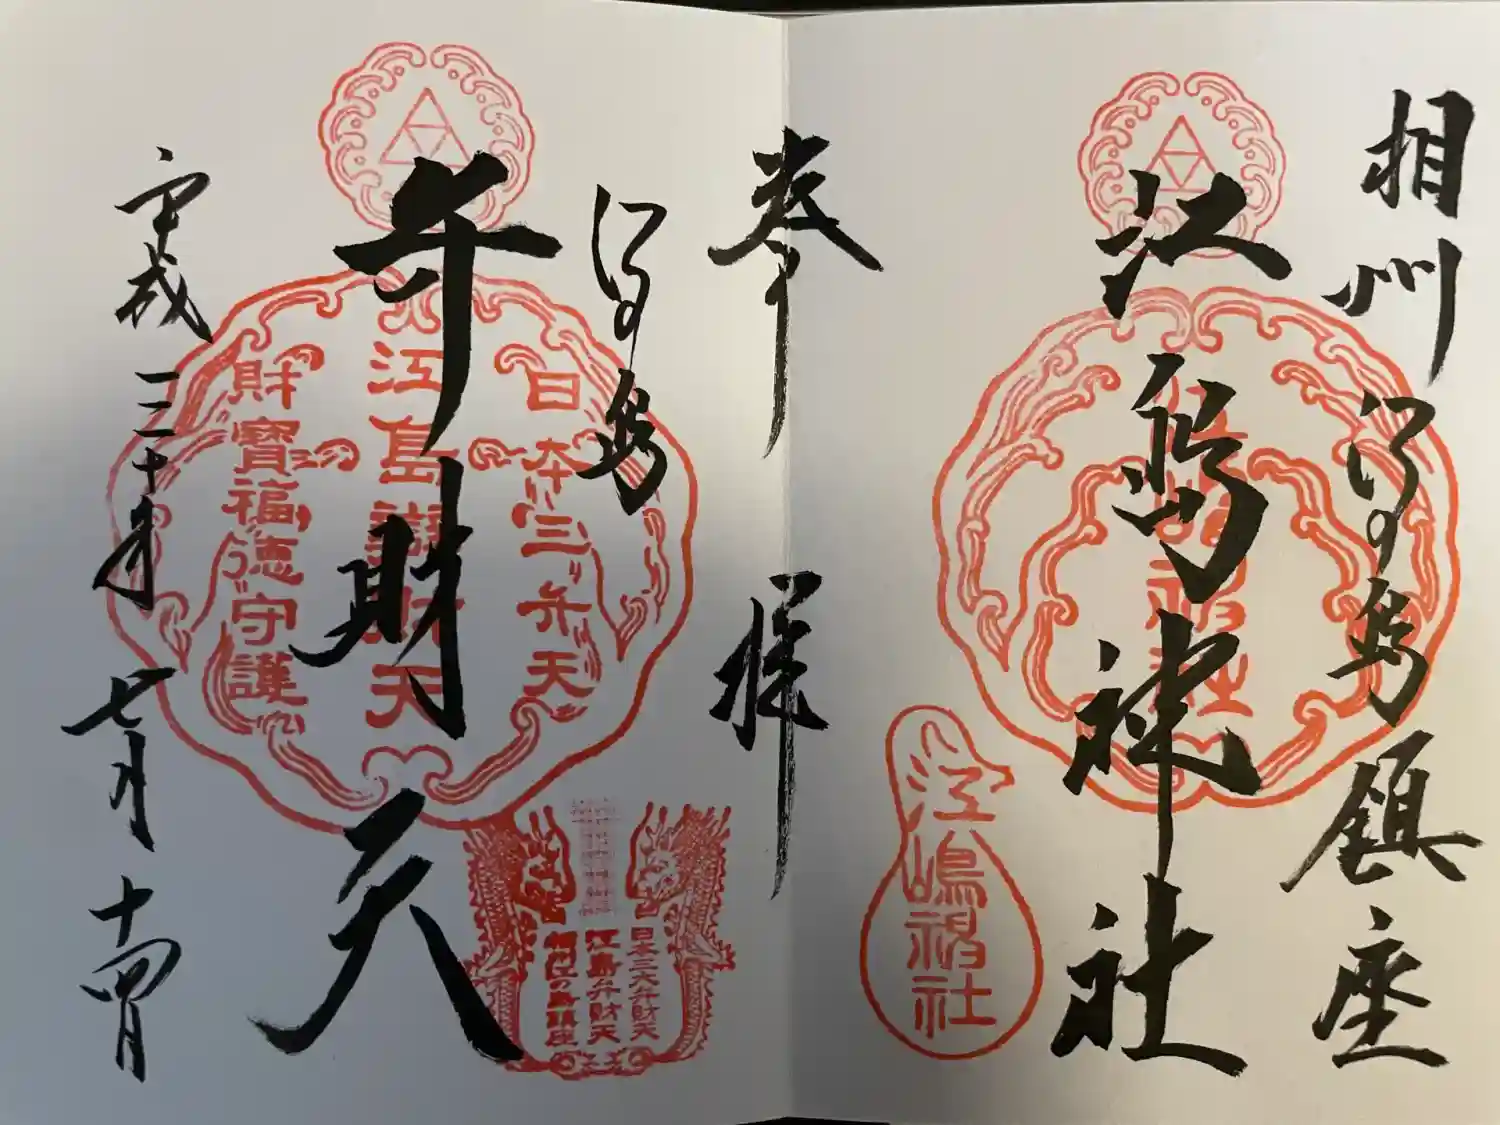 相州江の島鎮座
江島神社
江嶋神社
奉拝
江の島
弁財天
平成三十年七月十四日
日本三弁天
江島辨財天
財寶福徳守護
日本三大弁財天
江島弁財天
相州江の島鎮座